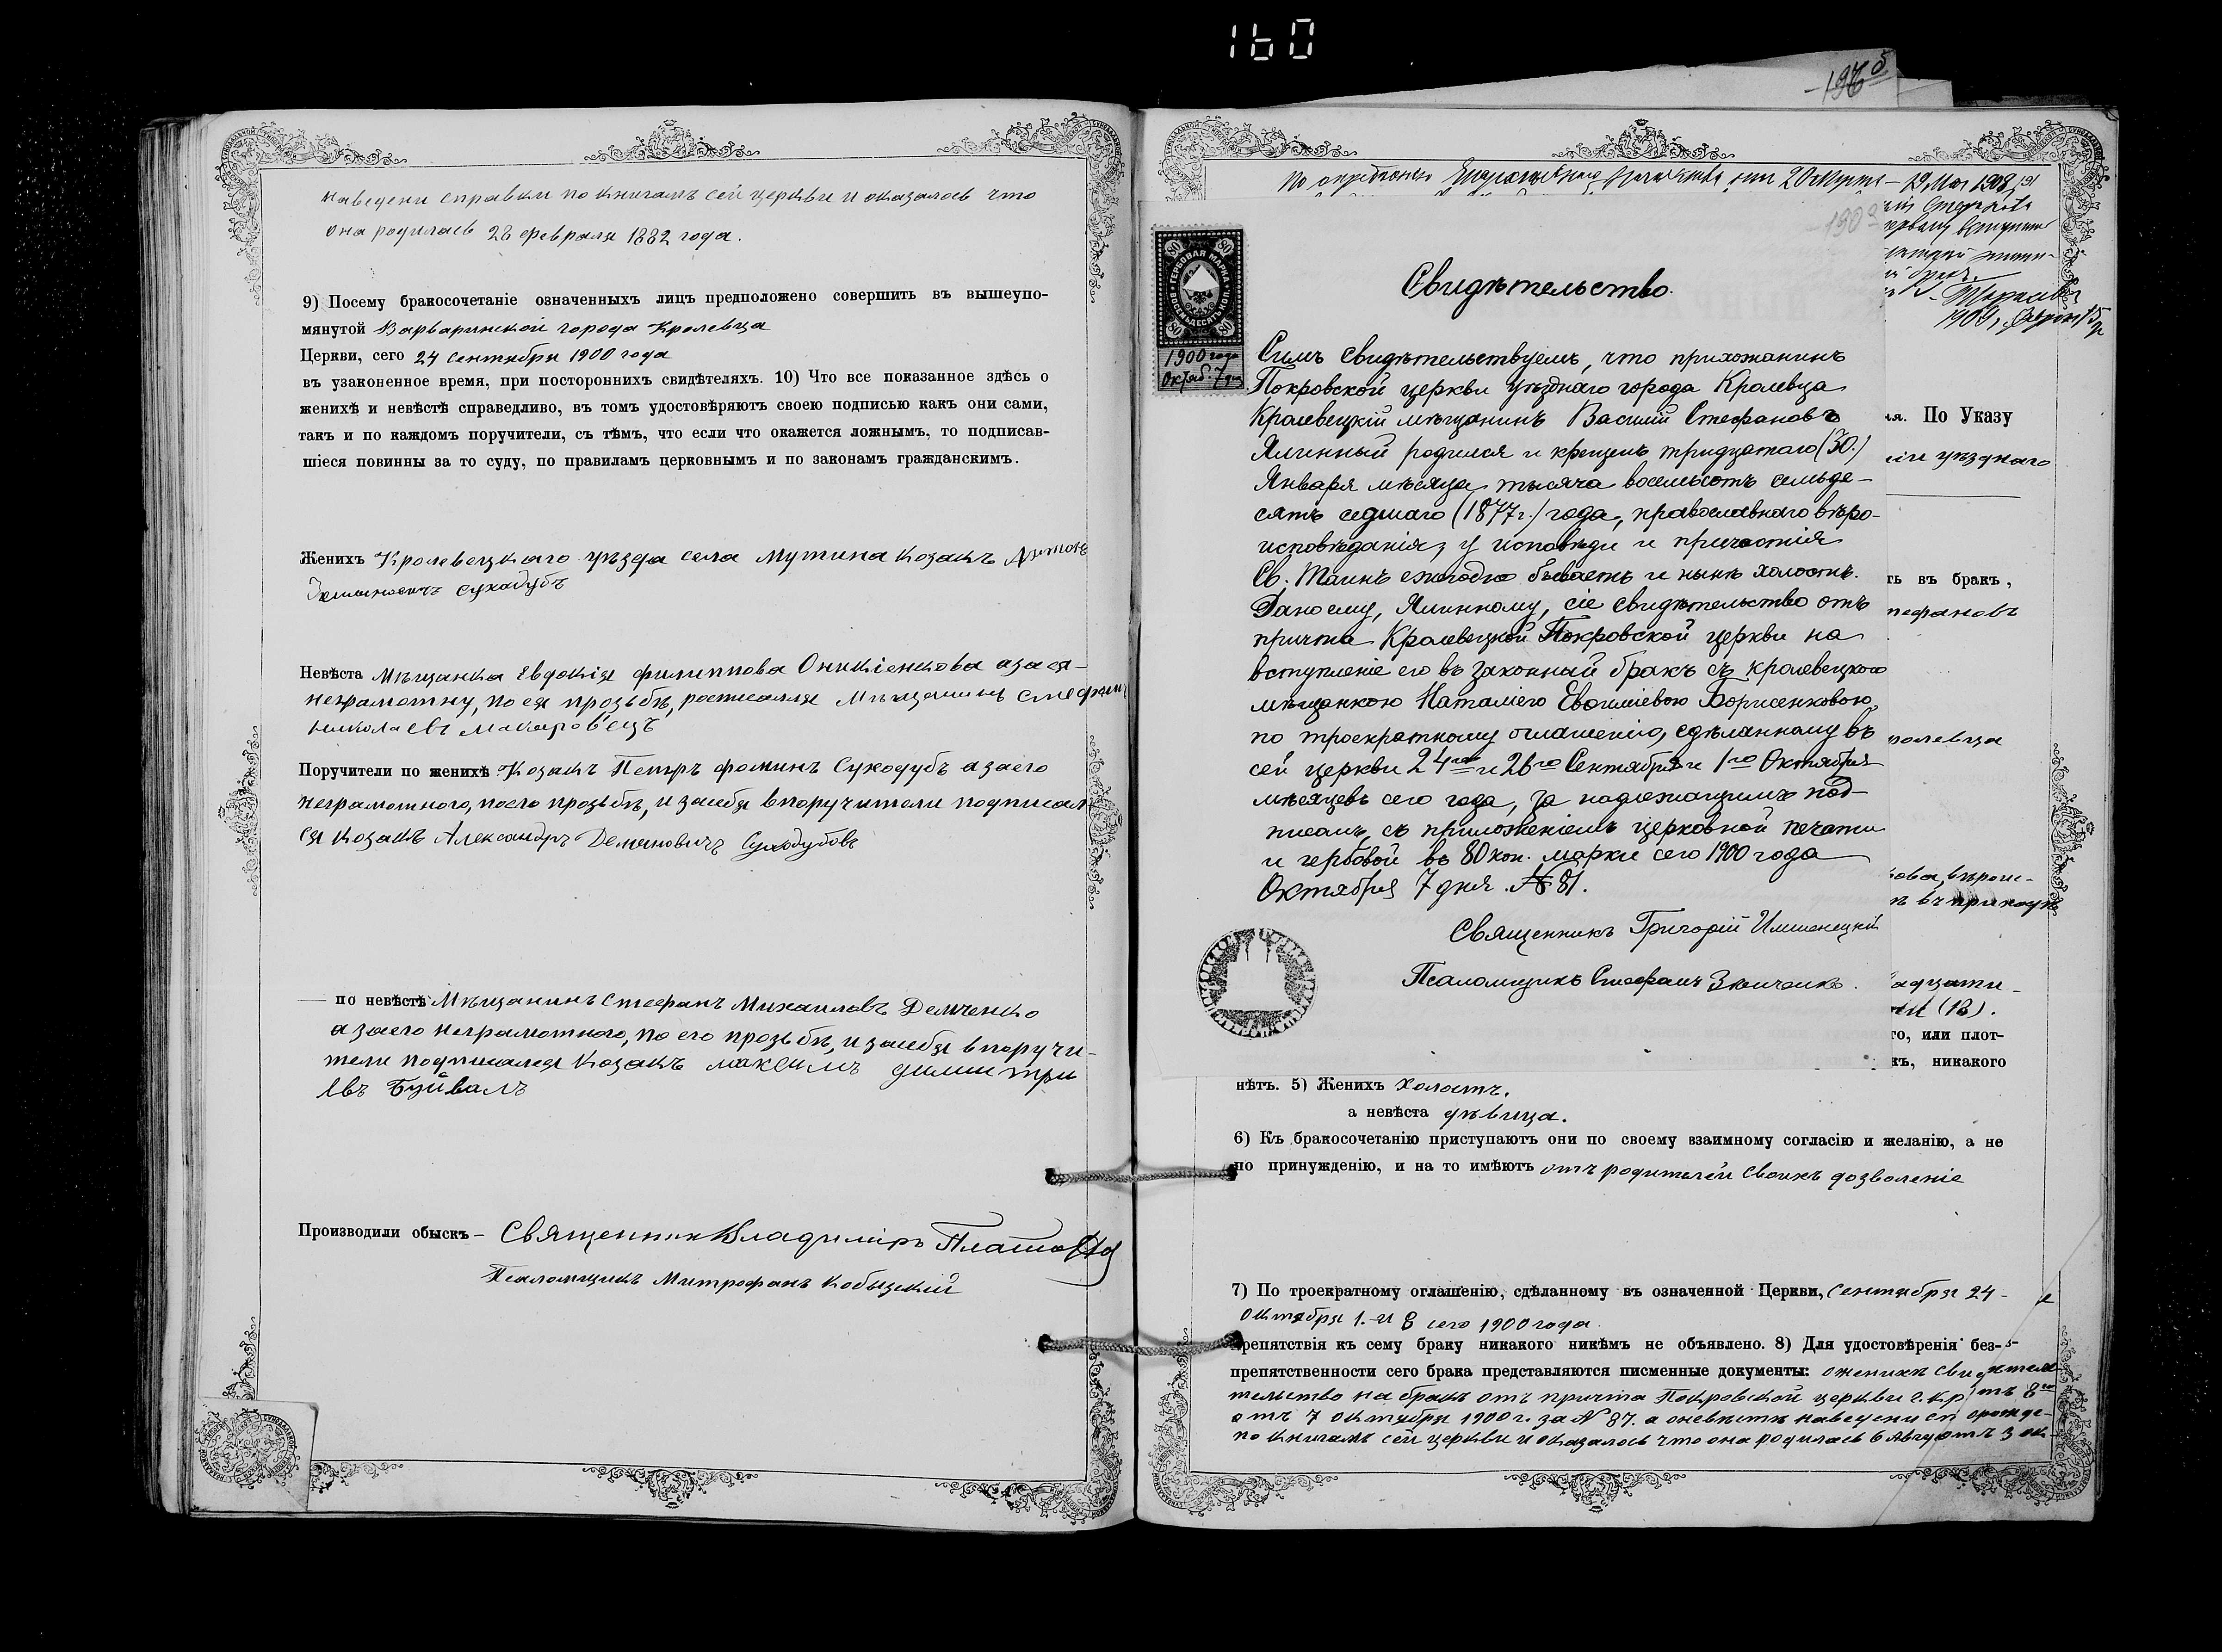 160
наведени справки по книгамъ сей церкви и оказалось что
она родилась 28 февраля 1882 года.
9) Посему бракосочетаніе означенныхъ лицъ предположено совершить въ вышеупо-
мянутой Варваринской города Кролевца
Церкви, сего 24 сентября 1900 года
въ узаконенное время, при постороннихъ свидѣтеляхъ. 10) Что все показанное здѣсь о
женихѣ и невѣстѣ справедливо, въ томъ удостовѣряютъ своею подписью какъ они сами,
такъ и по каждомъ поручители, съ тѣмъ, что если что окажется ложнымъ, то подписав-
шіеся повинны за то суду, по правиламъ церковнымъ и по законамъ гражданскимъ.
Женихъ Кролевецкаго уѣзда села Мутина козакъ
Суходубъ
Невѣста Мѣщанка Евдокія филиппова Оникіенкова а за ея
неграмотну, по ея прозьбѣ, росписался Мѣщанинъ Стефанъ
николаевъ макаров'ецъ
Поручители по женихѣ Козакъ Петръ фоминъ Суходубъ а за его
неграмотного, поего прозьбѣ, и за себя впоручители подписал
ся козакъ Александръ Демяновичъ Суходубовъ
по невѣстѣ Мѣщанинъ Стефанъ Михаиловъ Демченко
а заего неграмотного, по его прозьбѣ, и засебя впоручи-
тели подписался Козакъ максимъ димитри
евъ Буйвалъ
Производили обыскъ - Священникъ Владиміръ
Псаломщикъ Митрофанъ Кобыцкій
196 б
20 Марта - 19 Мая 1909
1900 года
Октяб. 7 дня
ГЕРБОВАЯ МАРКА
ВОСЕМЬДЕСЯТЪ КОП.
80 80
80 80
Свидѣтельство.
Симъ свидѣтельствуемъ, что прихожанинъ
Покровской церкви уѣзднаго города Кролевца
Кролевецкій мѣщанинъ Василій Стефановъ
Ялинный родился и крещенъ тридцатаго (30.)
Января мѣсяца тысяча восемьсотъ семьде-
сятъ седмаго (1877 г.) года, православнаго вѣро-
исповѣданія, у исповѣди и причастія
Св. Таинъ ежегодно бываетъ и нынѣ холостъ.
Дано ему, Ялинному, сіе свидѣтельство отъ
причта Кролевецкой Покровской церкви на
вступленіе его въ законный бракъ съ кролевецкою
мѣщанкою Наталіею Евфиміевою Борисенковою,
по троекратному оглашенію, сдѣланному въ
сей церкви 24го и 26го Сентября и 1го Октября
мѣсяцевъ сего года, за надлежащимъ под-
писомъ, съ приложеніемъ церковной печати
и гербовой въ 80 коп. марки сего 1900 года
Октября 7 дня. № 81.
Священникъ Григорій Имшенецкій
Псаломщикъ Стефанъ Зинченко.
ія. По Указу
уѣзднаго
ть въ бракъ,
тефановъ
ролевца
(18).
го, или плот-
къ, никакого
нѣтъ. 5) Женихъ холостъ.
а невѣста дѣвица.
6) Къ бракосочетанію приступаютъ они по своему взаимному согласію и желанію, а не
по принужденію, и на то имѣютъ отъ родителей своихъ дозволеніе
7) По троекратному оглашенію, сдѣланному въ означенной Церкви, сентября 24-
октября 1. и 8 сего 1900 года.
препятствія къ сему браку никакого никѣмъ не объявлено. 8) Для удостовѣренія без-
препятственности сего брака представляются писменные документы: оженихѣ свидѣтел
тельство на бракъ отъ причта Покровской церкви г. Кр
отъ 7 октября 1900 г. за № 87. а оневѣстѣ наведени сп
по книгамъ сей церкви и оказалось что она родилась 6 Авгу